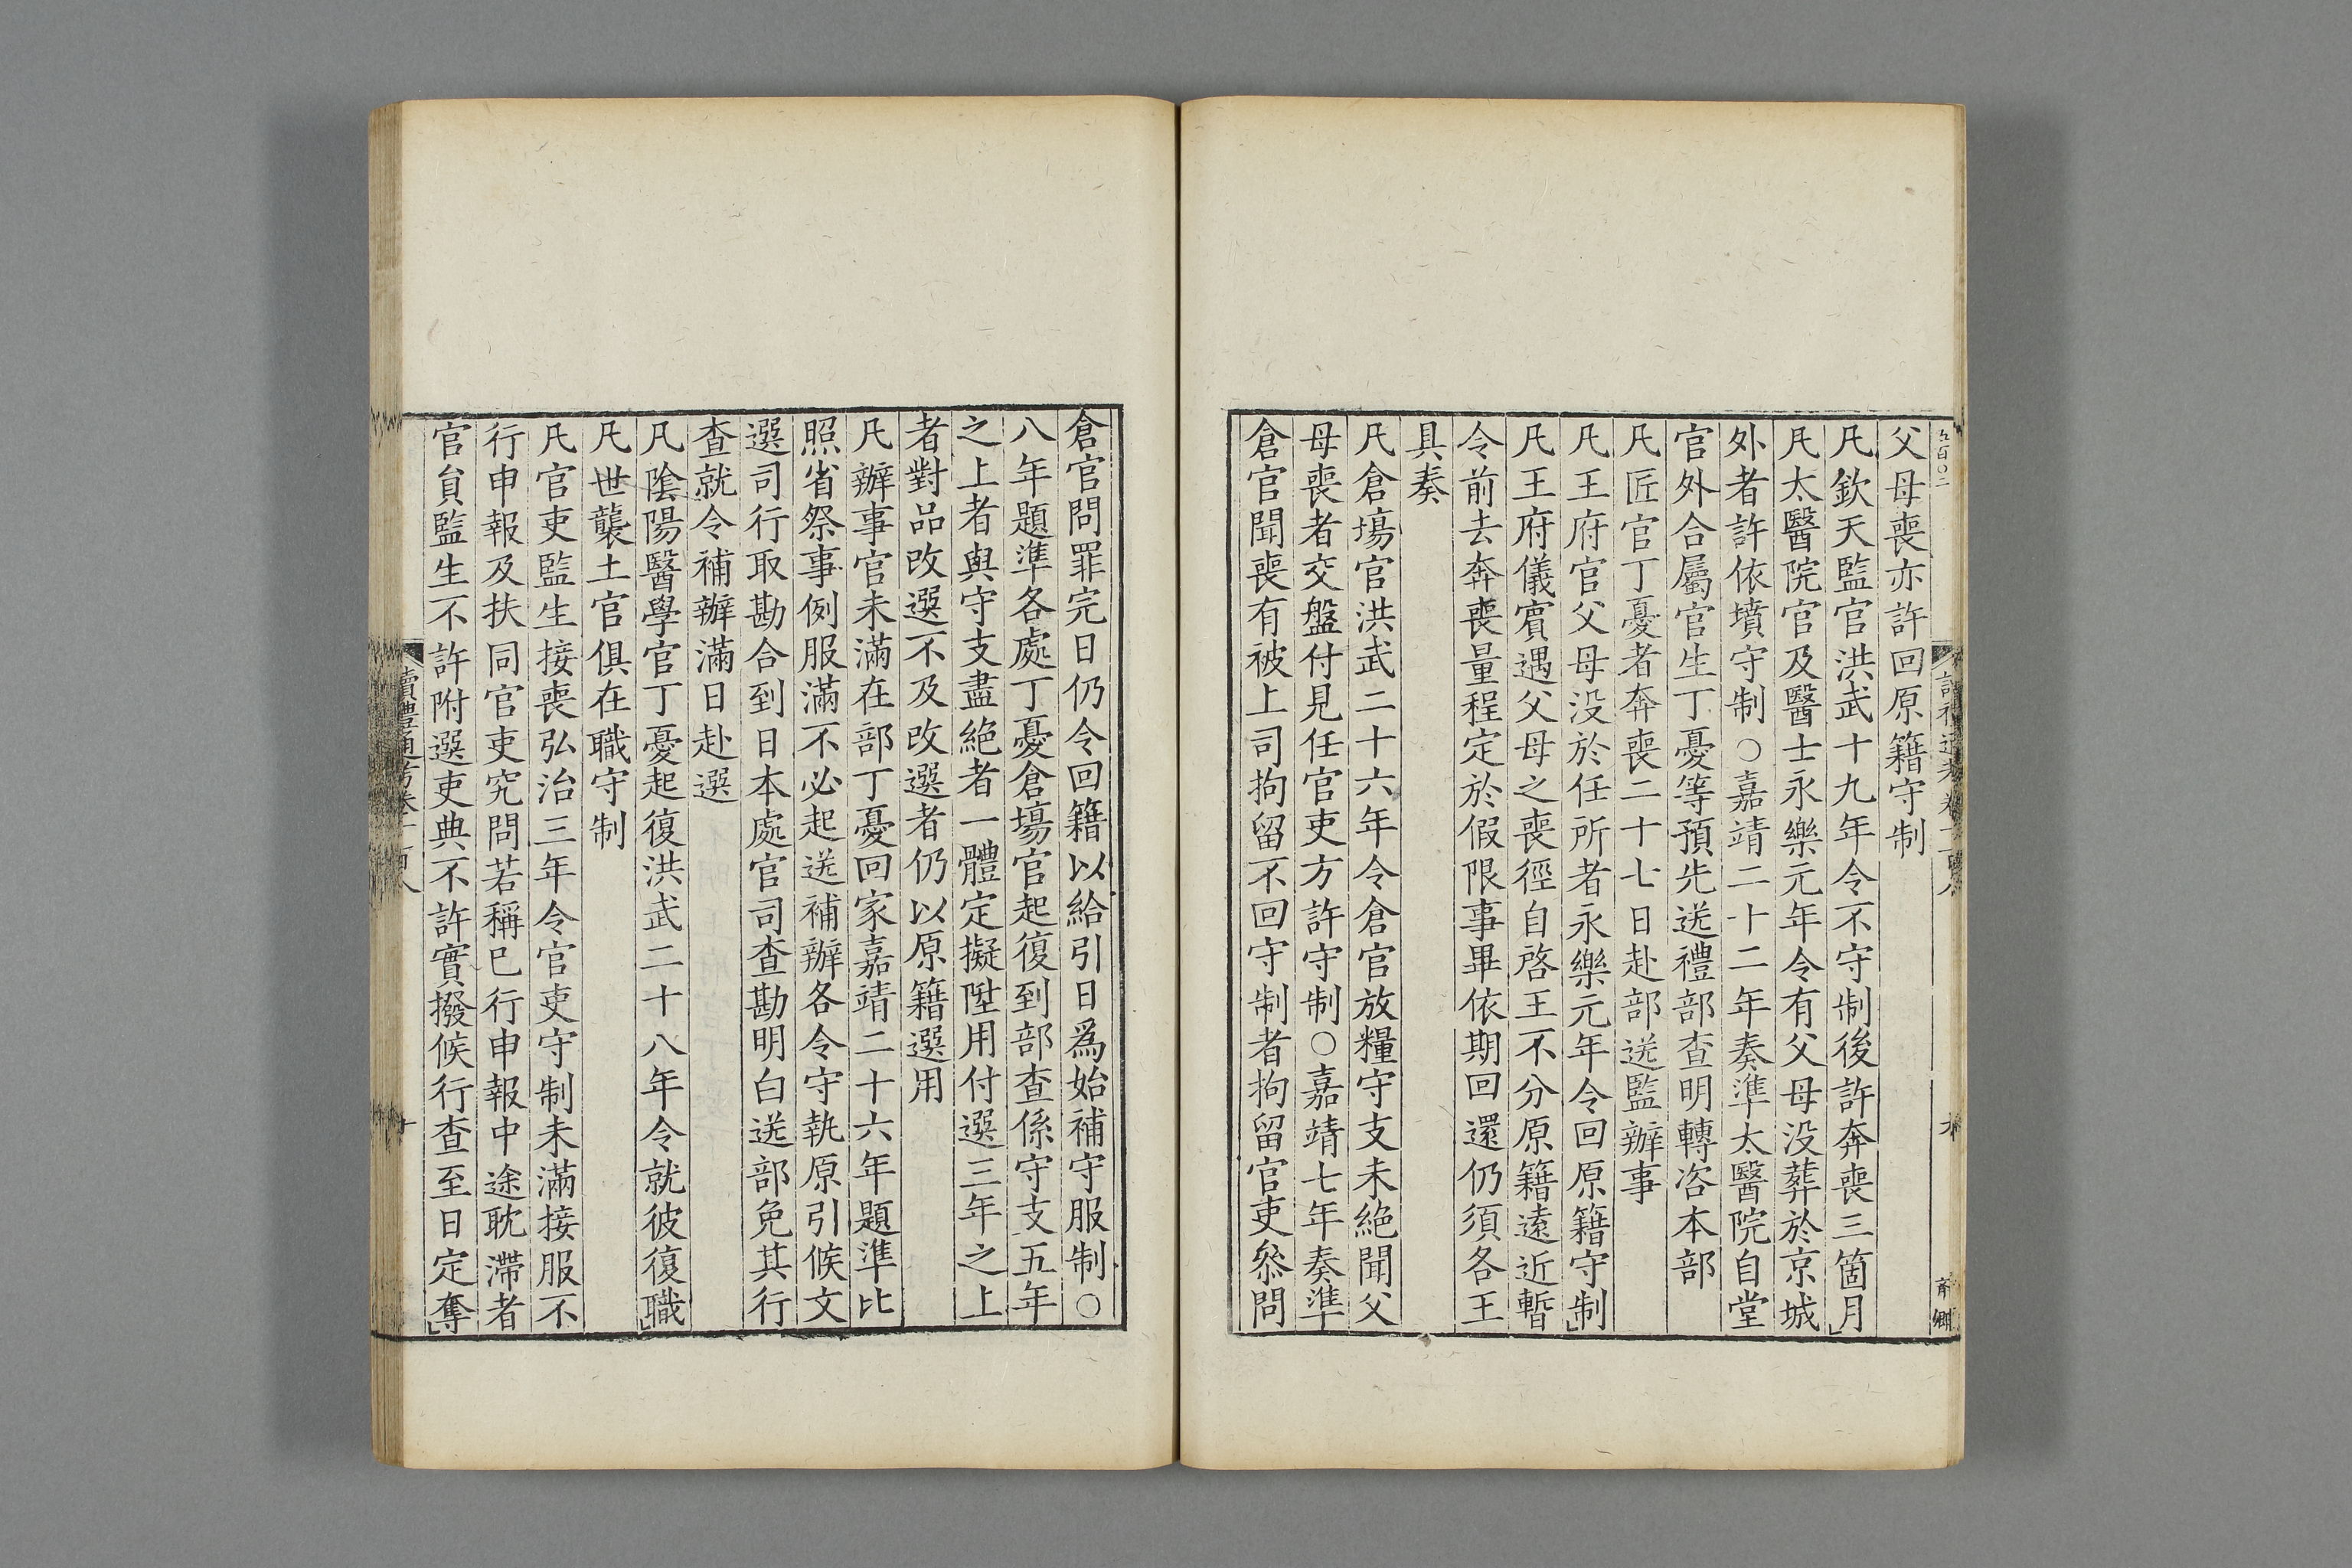 五百〇二
父母喪亦許回原籍守制
凡欽天監官洪武十九年令不守制後許奔喪三箇月
凡太醫院官及醫士永樂元年令有父母没葬於京城
外者許依墳守制○嘉靖二十二年奏準太醫院自堂
官外合屬官生丁憂等預先送禮部查明轉咨本部
凡匠官丁憂者奔喪二十七日赴部送監辦事
凡王府官父母没於任所者永樂元年令回原籍守制
凡王府儀賓遇父母之喪徑自啓王不分原籍遠近暫
令前去奔喪量程定於假限事畢依期回還仍須各王
具奏
凡倉塲官洪武二十六年令倉官放糧守支未絶聞父
母喪者交盤付見任官吏方許守制○嘉靖七年奏準
倉官聞喪有被上司拘留不回守制者拘留官吏叅問
倉官問罪完日仍令回籍以給引日爲始補守服制○
八年題準各處丁憂倉塲官起復到部查係守支五年
之上者與守支盡絶者一體定擬陞用付選三年之上
者對品改選不及改選者仍以原籍選用
凡辦事官未滿在部丁憂回家嘉靖二十六年題準比
照省祭事例服滿不必起送補辦各令守執原引候文
選司行取勘合到日本處官司查勘明白送部免其行
查就令補辦滿日赴選
凡陰陽醫學官丁憂起復洪武二十八年令就彼復職
凡世襲土官俱在職守制
凡官吏監生接喪弘治三年令官吏守制未滿接服不
行申報及扶同官吏究問若稱已行申報中途耽滯者
官貟監生不許附選吏典不許實撥候行查至日定奪
讀禮通考卷一百八